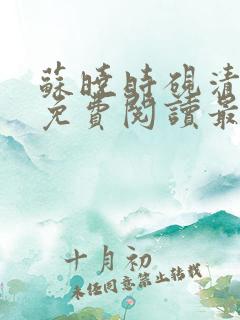 蘇曉時硯清
免費閱讀最
十月初
未經同意禁止轉載